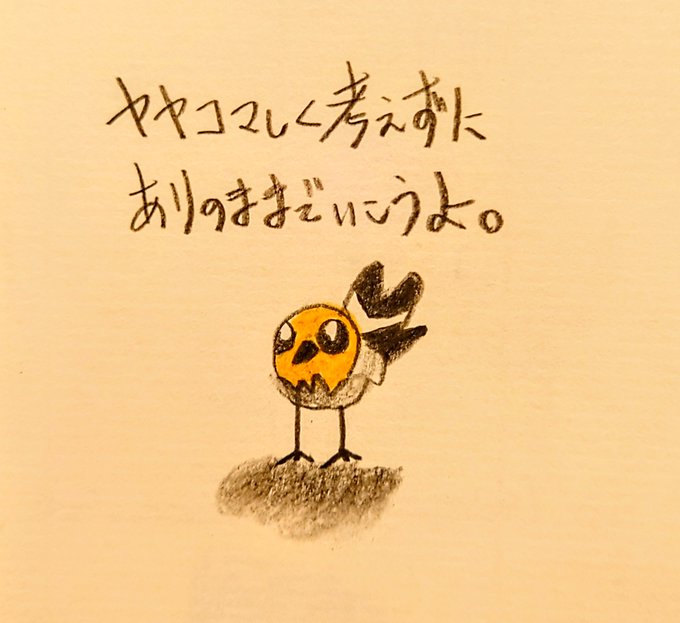 ヤヤコマしく考えずに
ありのままでいこうよ。